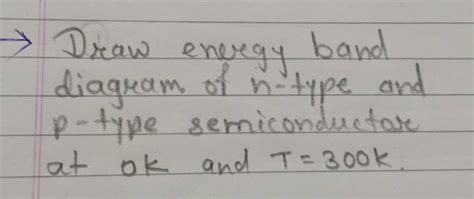 → Draw energy band
diagram of n-type and
p-type semiconductor
at 0K and T=300K.